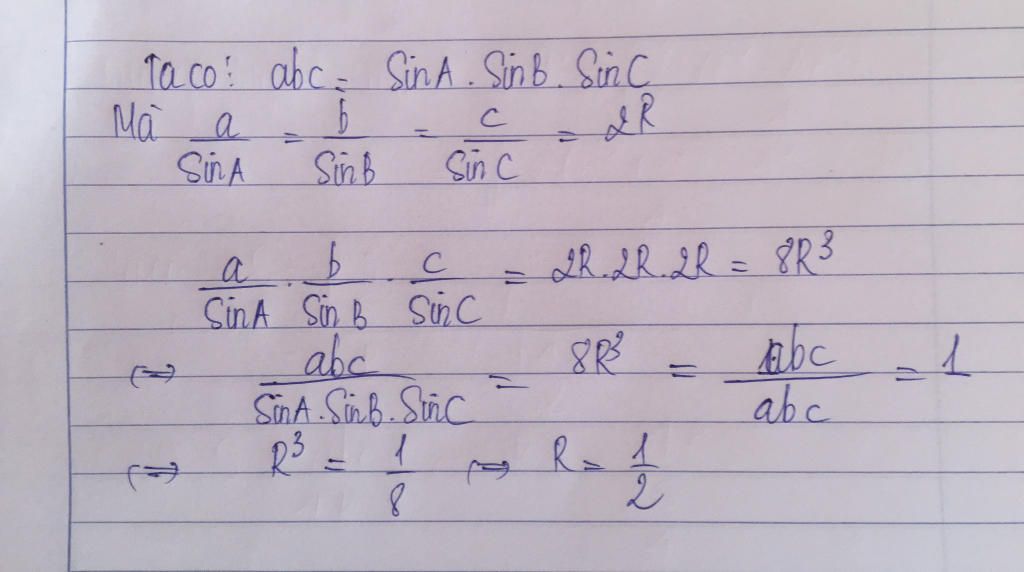 Ta co: abc = SinA . SinB . SinC
Mà a/SinA = b/SinB = c/SinC = 2R
a/SinA . b/SinB . c/SinC = 2R.2R.2R = 8R³
⇔ abc/SinA.SinB.SinC = 8R³ = abc/abc = 1
⇔ R³ = 1/8 ⇔ R = 1/2